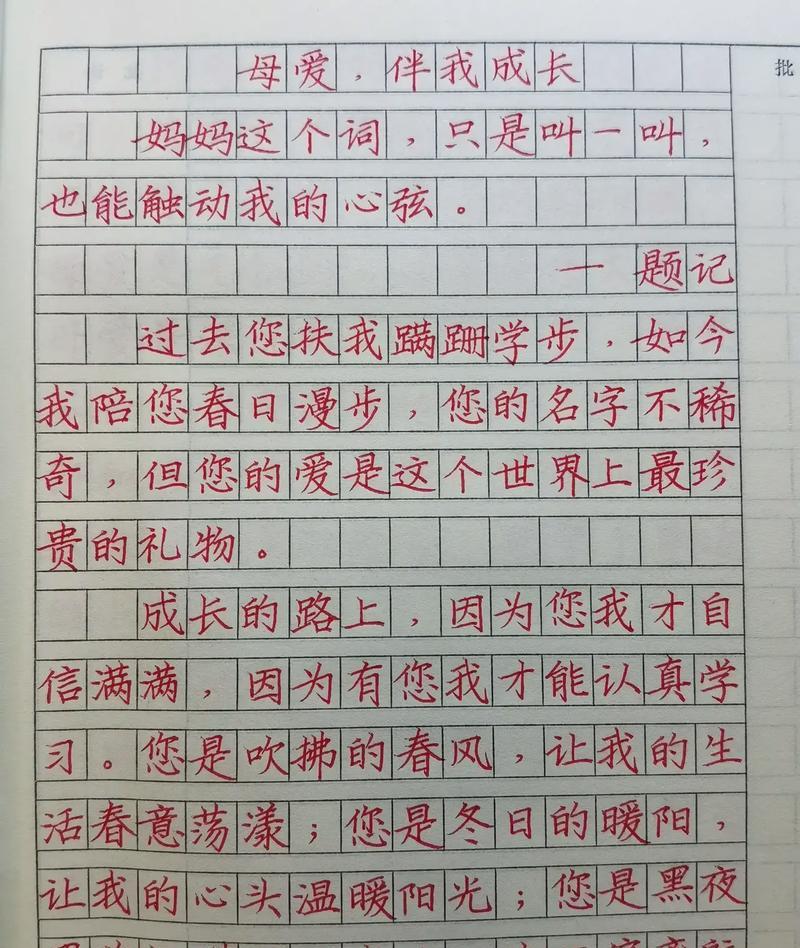 母爱，伴我成长
批
妈妈这个词，只是叫一叫，
也能触动我的心弦。
一 题记
过去您扶我蹒跚学步，如今
我陪您春日漫步，您的名字不稀
奇，但您的爱是这个世界上最珍
贵的礼物。
成长的路上，因为您我才自
信满满，因为有您我才能认真学
习。您是吹拂的春风，让我的生
活春意荡漾；您是冬日的暖阳，
让我的心头温暖阳光；您是黑夜